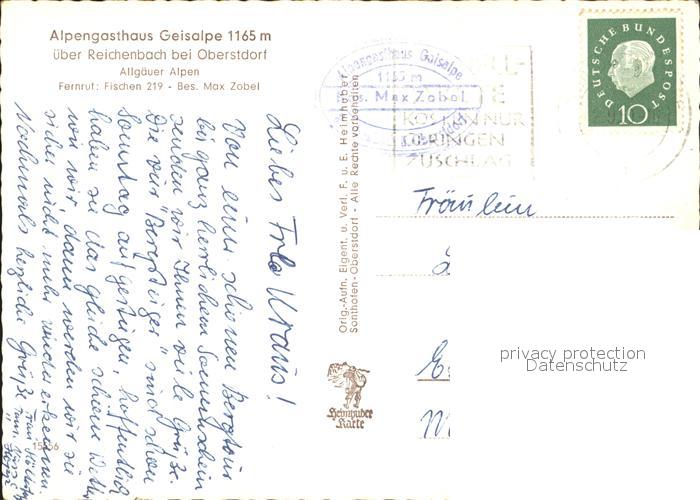 Alpengasthaus Geisalpe 1165 m
über Reichenbach bei Oberstdorf
Allgäuer Alpen
Fernruf: Fischen 219 - Bes. Max Zobel
Liebes Frl. Kraus!
Von einer schönen Bergtour
bei ganz herrlichem Sonnenschein
senden wir Ihnen viele Grüße.
Die vier "Bergsteiger" sind schon
Sonntag aufgestiegen, hoffentlich
haben sie das gleiche schöne Wetter
wie wir dann werden wir sie
sicher nicht mehr wiedererkennen
Nochmals herzliche Grüße
15556
Orig.-Aufn. Eigent. u. Verl. F. u. E. Heimhuber
Sonthofen-Oberstdorf - Alle Rechte vorbehalten
Heimhuber
Karte
Alpengasthaus Geisalpe
1165 m
Bes. Max Zobel
KOSTEN NUR
GERINGEN
ZUSCHLAG
DEUTSCHE BUNDESPOST
10
Fräulein
E
M
privacy protection
Datenschutz